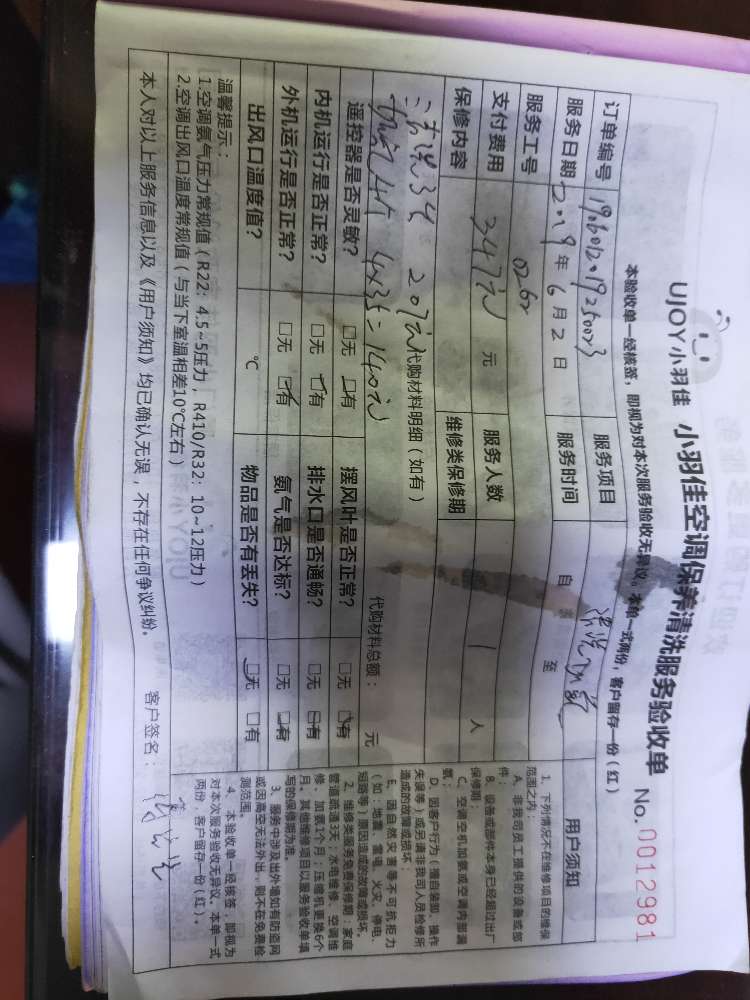 UJOY小羽佳 小羽佳空调保养清洗服务验收单 No. 0012981
本验收单一经核签，即视为对本次服务验收无异议。本单一式两份，客户留存一份（红）
订单编号 服务项目 清洗加氨
服务日期 2019年6月2日 服务时间 自 至
服务工号 0262
支付费用 347元 元 服务人数 1 人
保修内容 维修类保修期
清洗3台 207元
代购材料明细（如有） 代购材料总额： 元
4×35=140元
遥控器是否灵敏？ □无 □有 摆风叶是否正常？ □无 □有
内机运行是否正常？ □无 □有 排水口是否通畅？ □无 □有
外机运行是否正常？ □无 □有 氨气是否达标？ □无 □有
出风口温度值？ ℃ 物品是否有丢失？ □无 □有
温馨提示：
1.空调氨气压力常规值（R22：4.5~5压力，R410/R32：10~12压力）
2.空调出风口温度常规值（与当下室温相差10℃左右）
本人对以上服务信息以及《用户须知》均已确认无误，不存在任何争议纠纷。 客户签名：
用户须知
1、下列情况不在维修项目的维保
范围之内：
A、非我司员工提供的设备或部
件；
B、设备或部件本身已经超过出厂
保修期；
C、空调空机加氨或空调内部漏
氨；
D、因客户行为（擅自装卸、操作
失误等）或另请非我司人员检修所
造成的故障或损坏；
E、因自然灾害等不可抗拒力
（如：地震、雷电、火灾、停电、
短路等）原因造成的故障或损坏。
2、维修类服务免费保修期：家庭
管道疏通3天；水电维修、空调维
修、加氨1个月；压缩机更换6个
月。其他维修项目以服务验收单填
写的保修期为准。
3、服务中涉及出外墙如有防盗网
或因高空无法外出，则不在免费检
测范围。
4、本验收单一经核签，即视为
对本次服务验收无异议。本单一式
两份，客户留存一份（红）。